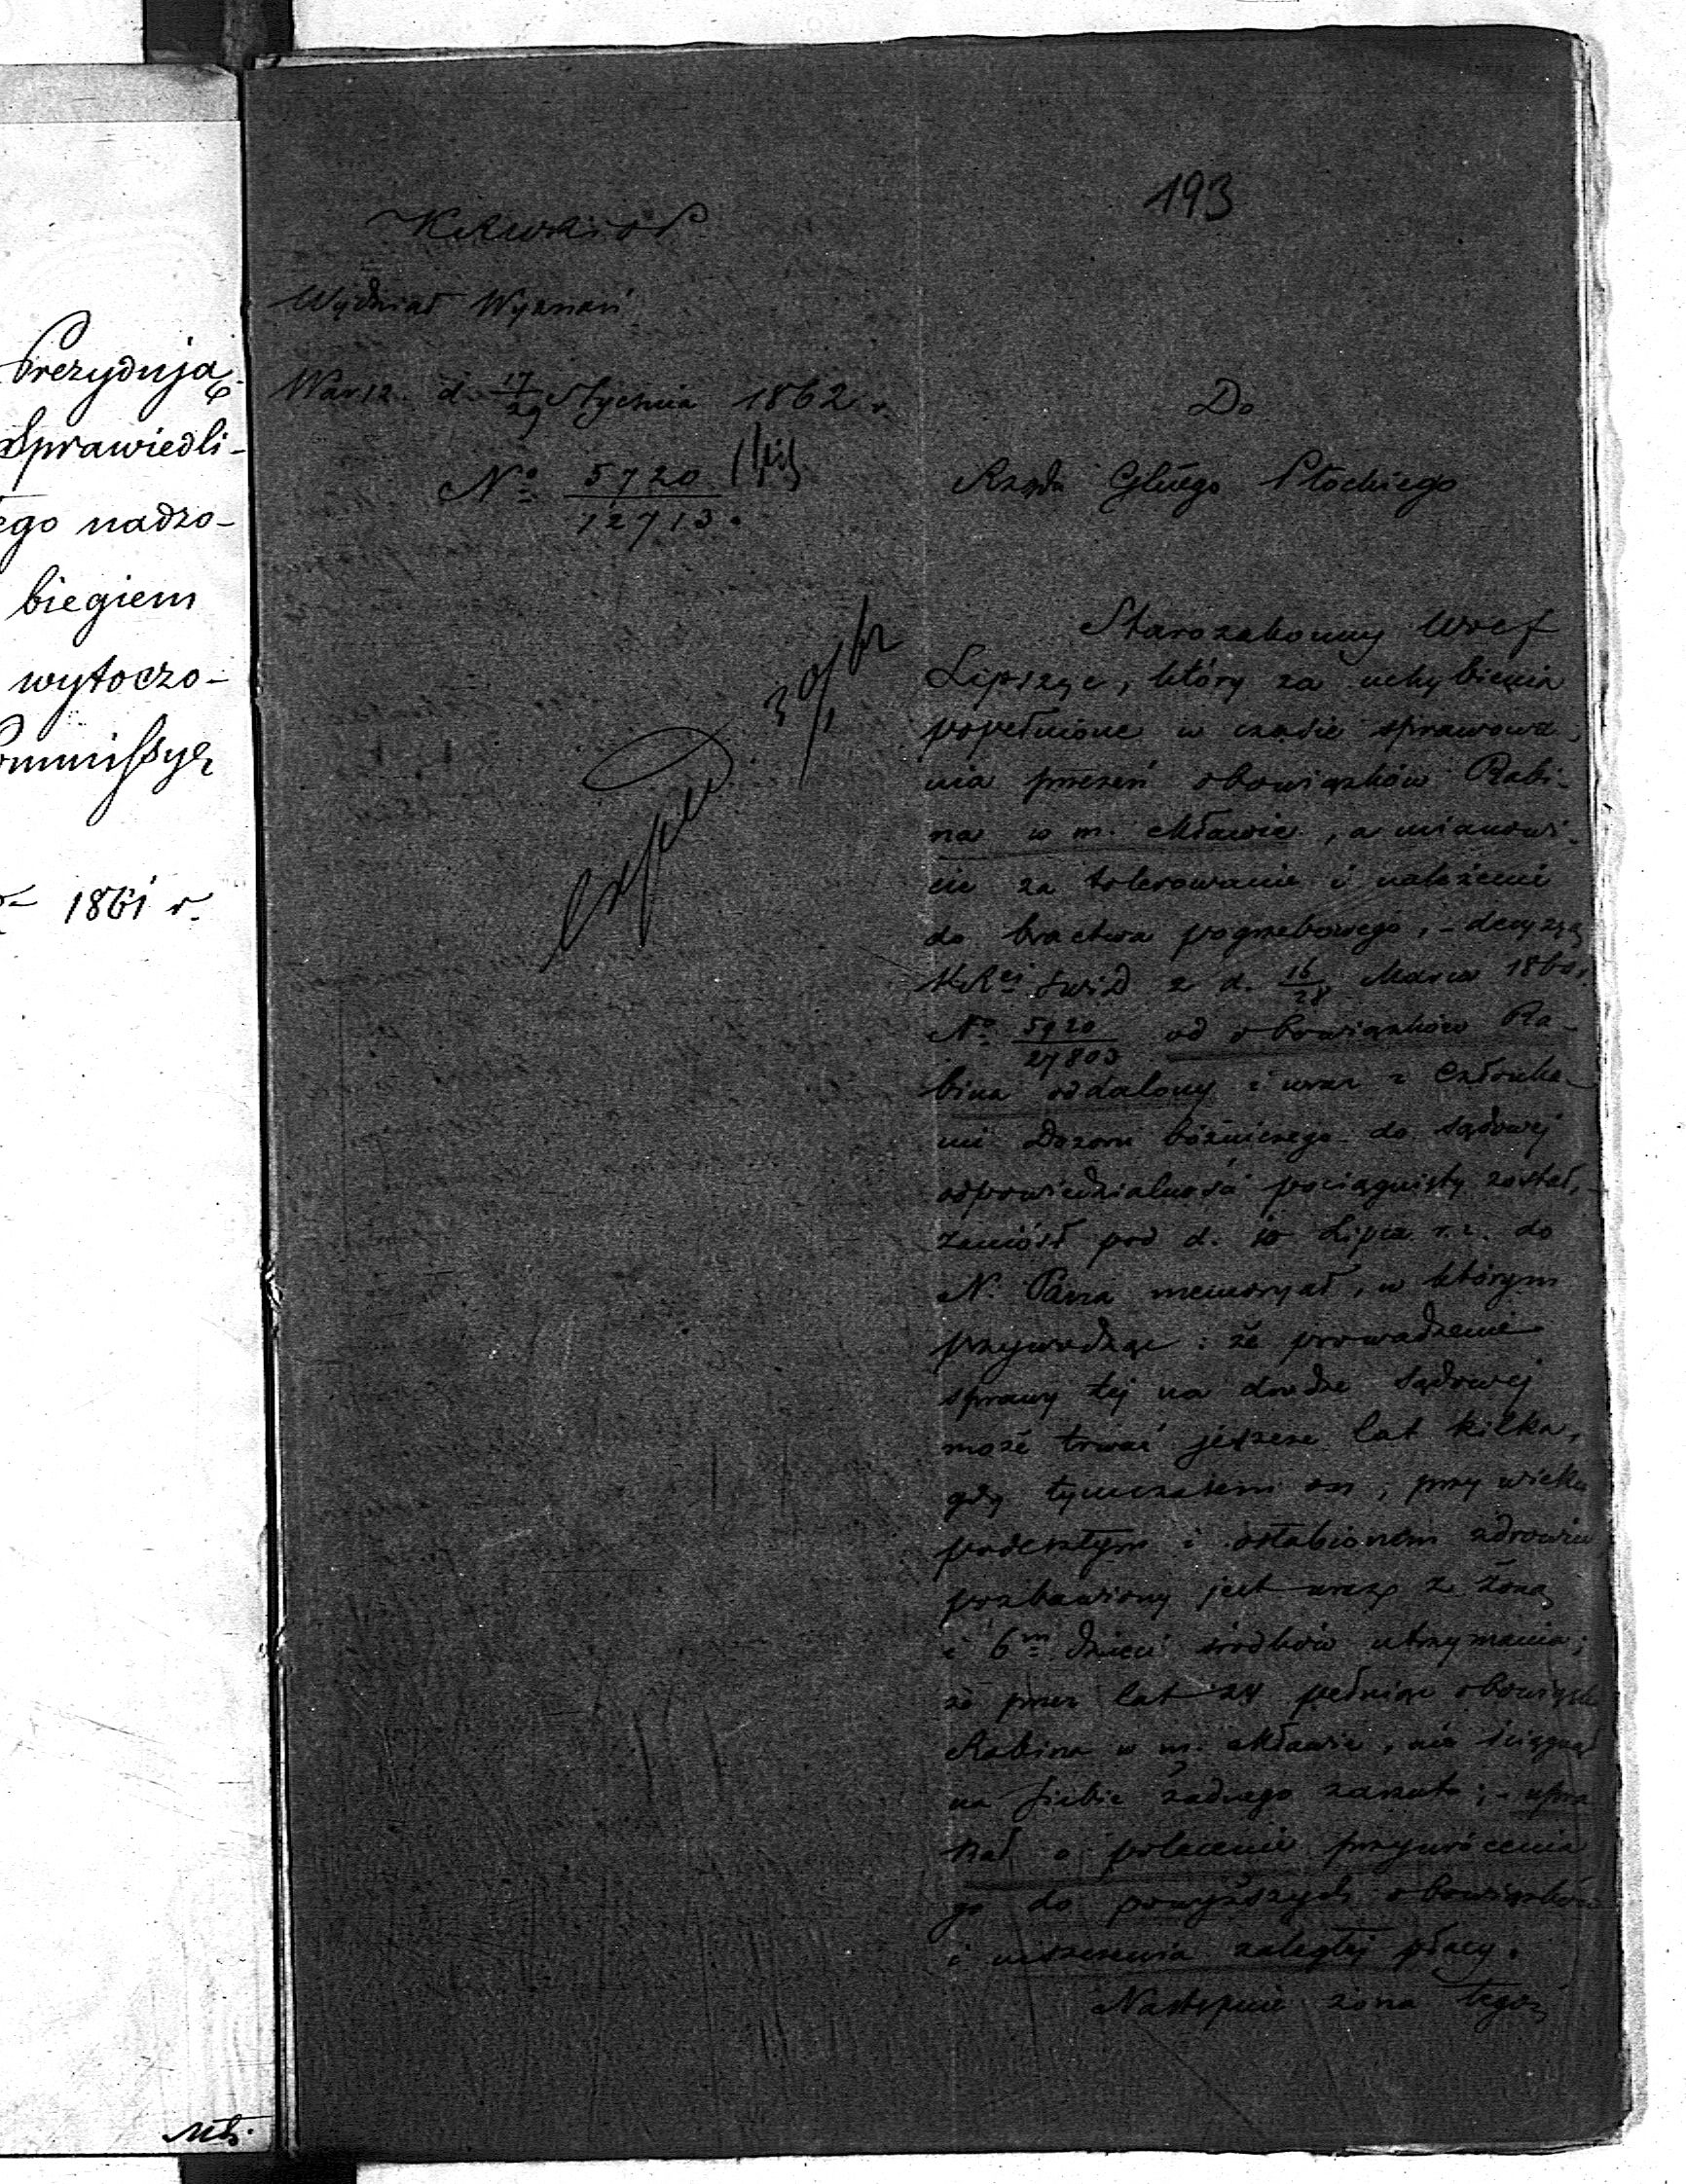 Prezydują
Sprawiedli-
ego nadzo-
biegiem
wytoczo-
ommissyę
1861 r.
193
Wydział Wyznań
Warsz. d. 17/29 Stycznia 1862 r.
No 5720/12713.
Do
Rządu Głnego Płockiego
exped 30/1 62
Starozakonny Wolf
Lipszyc, który za uchybienia
popełnione w czasie sprawowa-
nia przezeń obowiązków Rabi-
na w m. Mławie, a mianowi-
cie za tolerowanie i należenie
do bractwa pogrzebowego, - decyzyą
KRej z d. 16/28 Marca 1860 r.
No 5920/27803 od obowiązków Ra-
bina oddalony i wraz z Członka-
mi Dozoru bóżniczego do sądowej
odpowiedzialności pociągnięty został, -
zaniósł pod d. 10 Lipca r. z. do
N. Pana memoryał, w którym
przywodząc: że prowadzenie
sprawy tej na drodze sądowej
może trwać jeszcze lat kilka,
gdy tymczasem on, przy wieku
podeszłym i osłabionem zdrowiu
pozbawiony jest wraz z żoną
i 6m dzieci środków utrzymania;
że przez lat 24 pełniąc obowiązki
Rabina w m. Mławie, nie ściągnął
na siebie żadnego zarzutu; - upra
szał o polecenie przywrócenia
go do powyższych obowiązków
i uiszczenia zaległej płacy.
Następnie żona tegoż